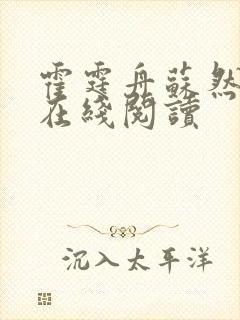 霍霆舟蘇然
在綫閱讀
沉入太平洋